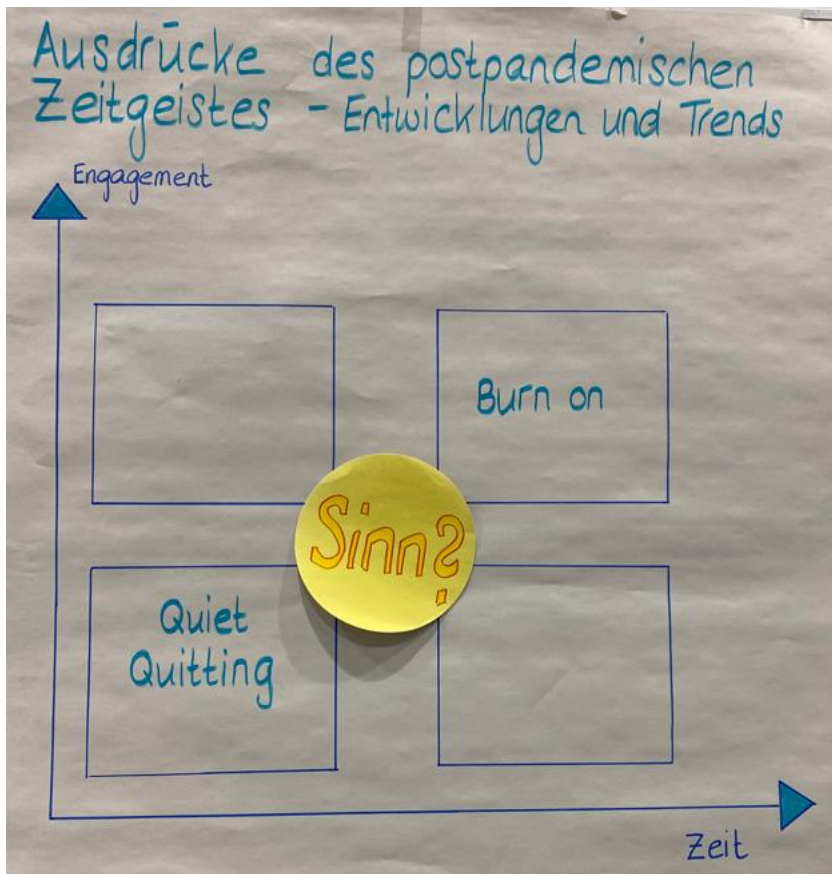 Ausdrücke des postpandemischen
Zeitgeistes - Entwicklungen und Trends
Engagement
Burn on
Sinn?
Quiet
Quitting
Zeit